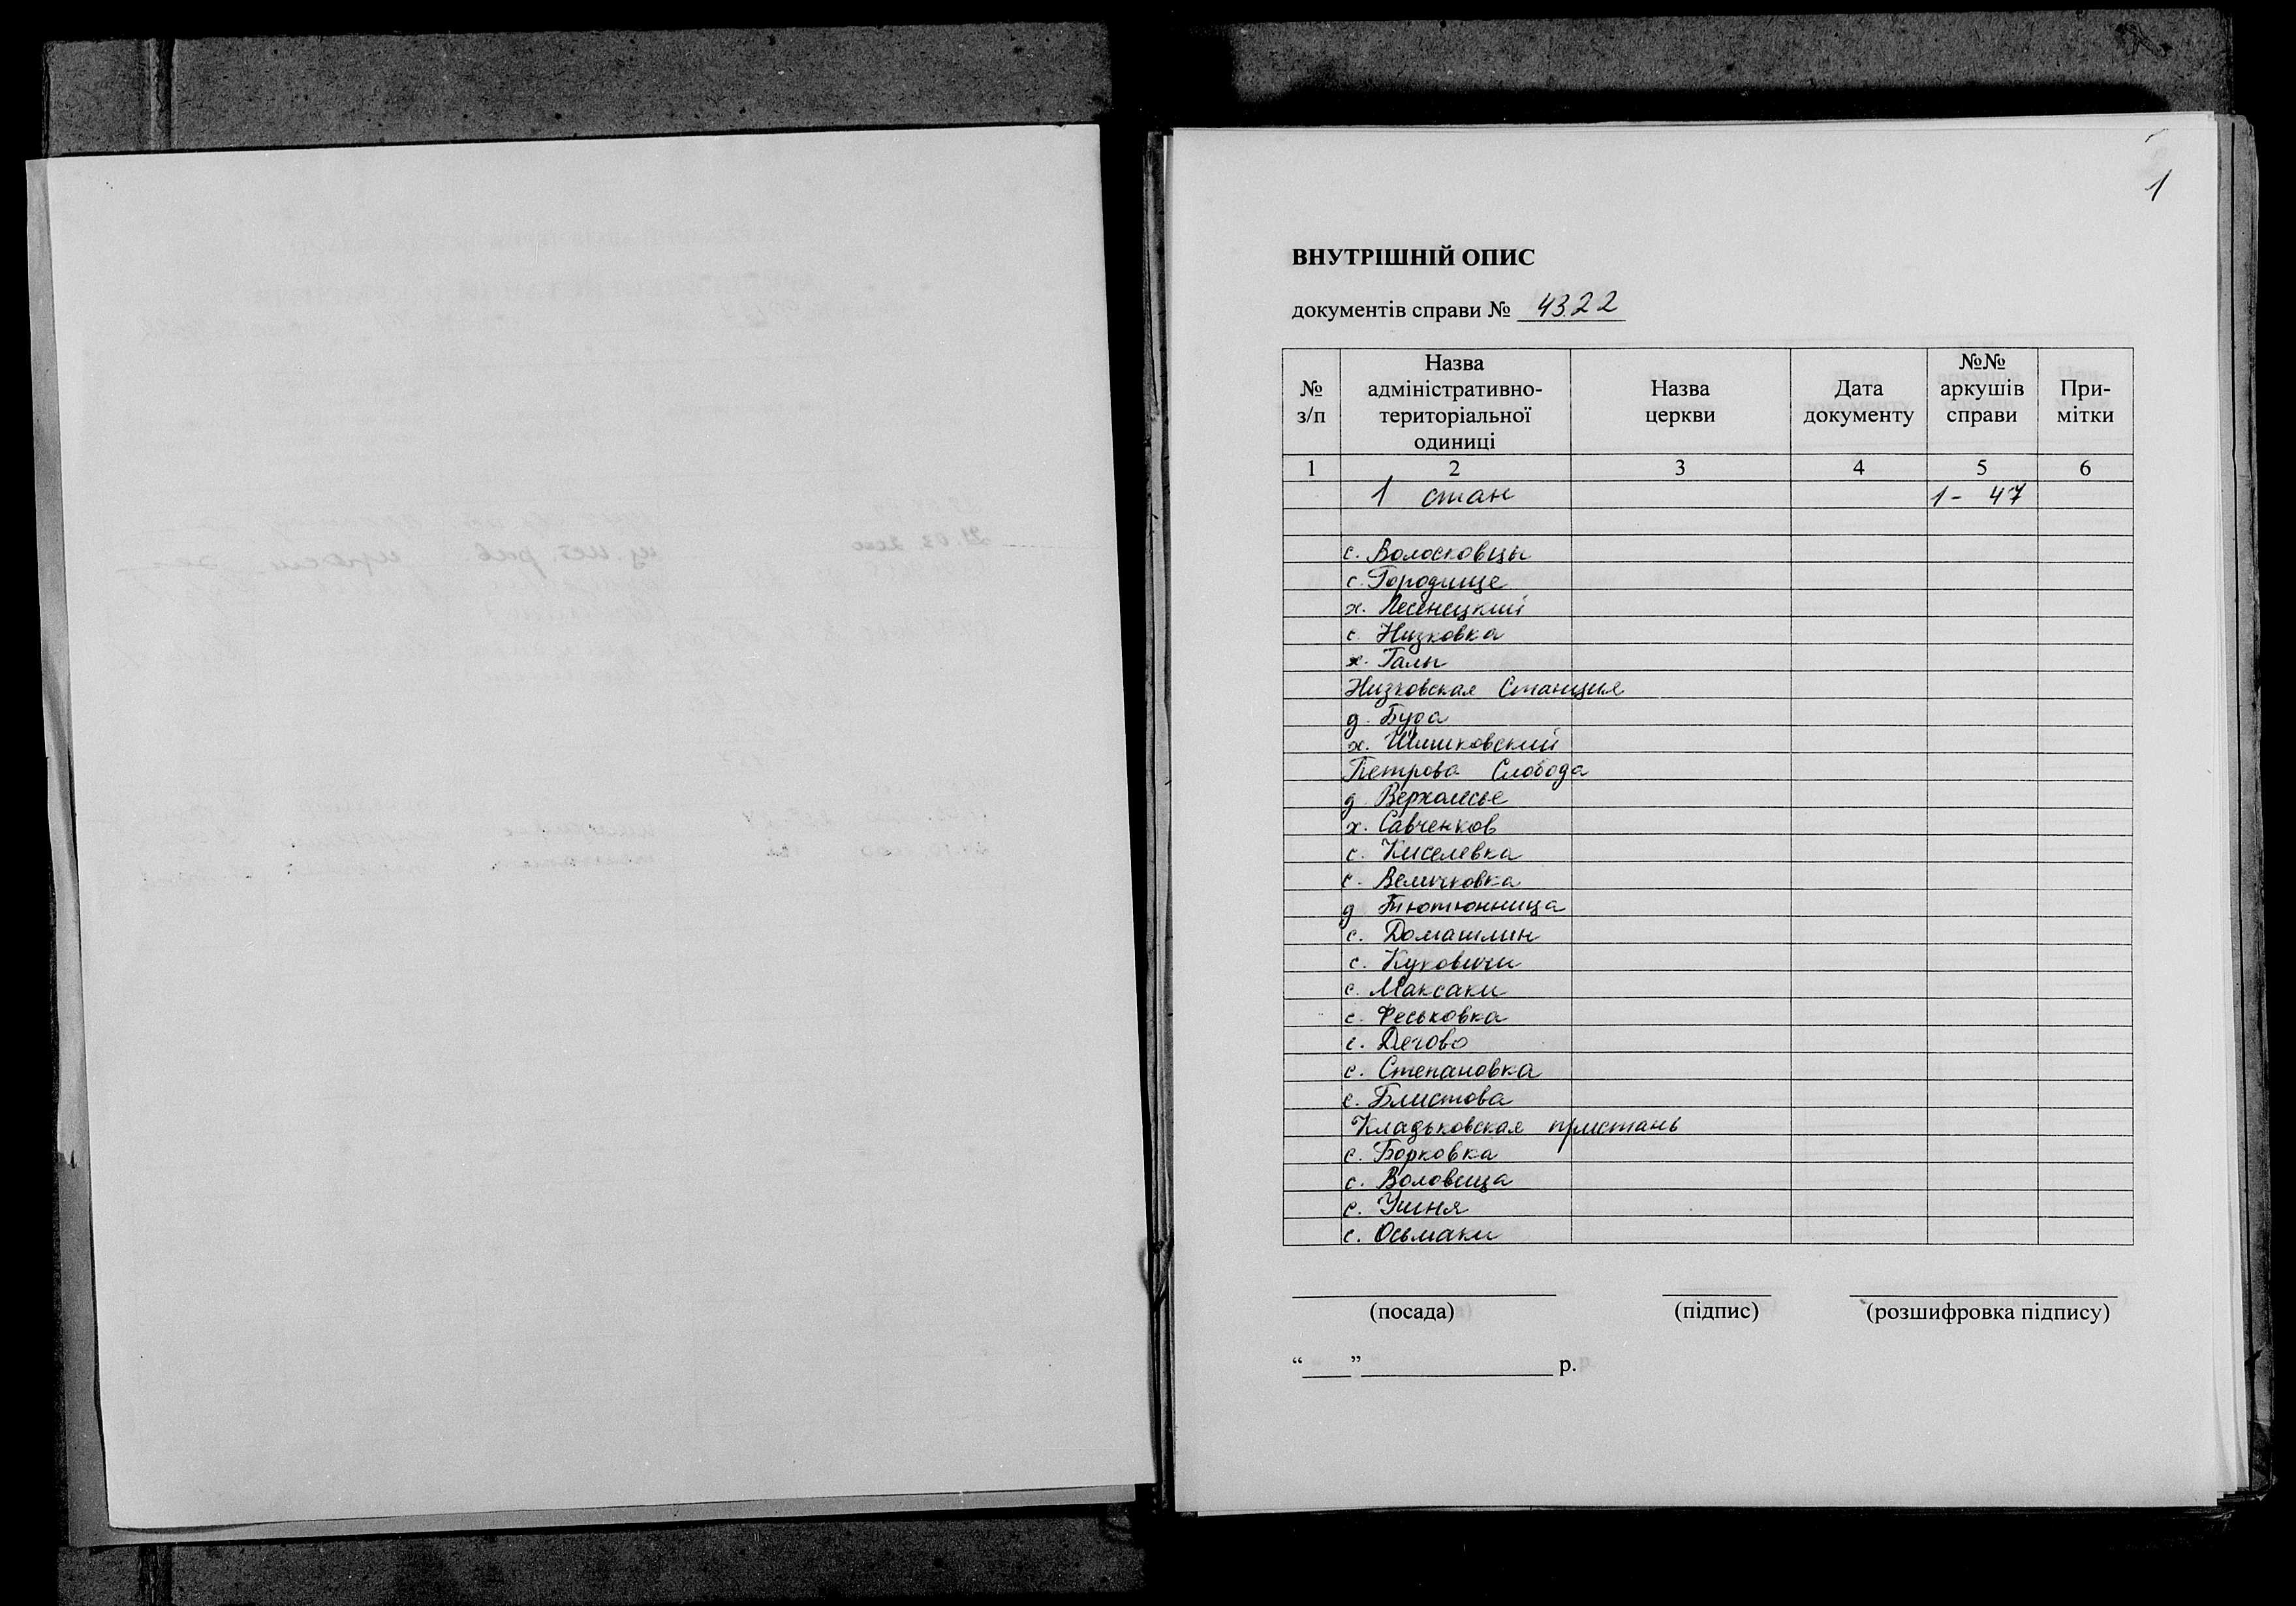 1
ВНУТРІШНІЙ ОПИС
документів справи № 4322
№ з/п
Назва адміністративно-територіальної одиниці
Назва церкви
Дата документу
№№ аркушів справи
При-мітки
1 2 3 4 5 6
1 стан 1 - 47
с. Волосковцы
с. Городище
х. Лесенецкий
с. Низковка
х. Галы
Низковская Станция
д. Буда
х. Шишковский
Петрова Слобода
д. Верхолесье
х. Савченков
с. Киселевка
с. Величковка
д Тютюнница
с. Домашлин
с. Куковичи
с. Максаки
с. Феськовка
с. Дягово
с. Степановка
с. Блистова
Кладьковская пристань
с. Борковка
с. Воловица
с. Ушня
с. Осьмаки
(посада) (підпис) (розшифровка підпису)
“___”______________ р.